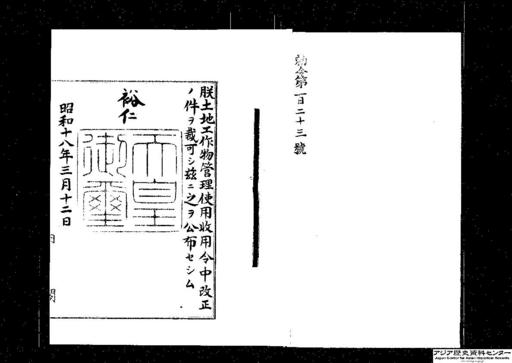 勅令第一百二十三號
朕土地工作物管理使用收用令中改正
ノ件ヲ裁可シ茲ニ之ヲ公布セシム
裕仁
天皇御璽
昭和十八年三月十二日
アジア歴史資料センター
Japan Center for Asian Historical Records